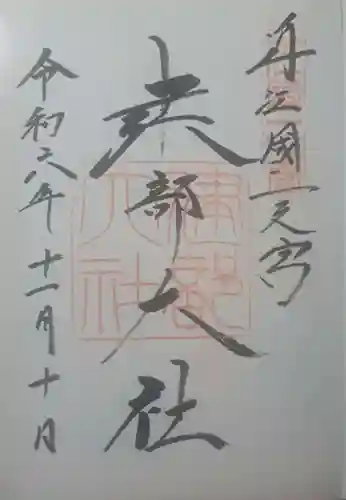 近江國一之宮
建部大社
令和六年十一月十日
建部大社